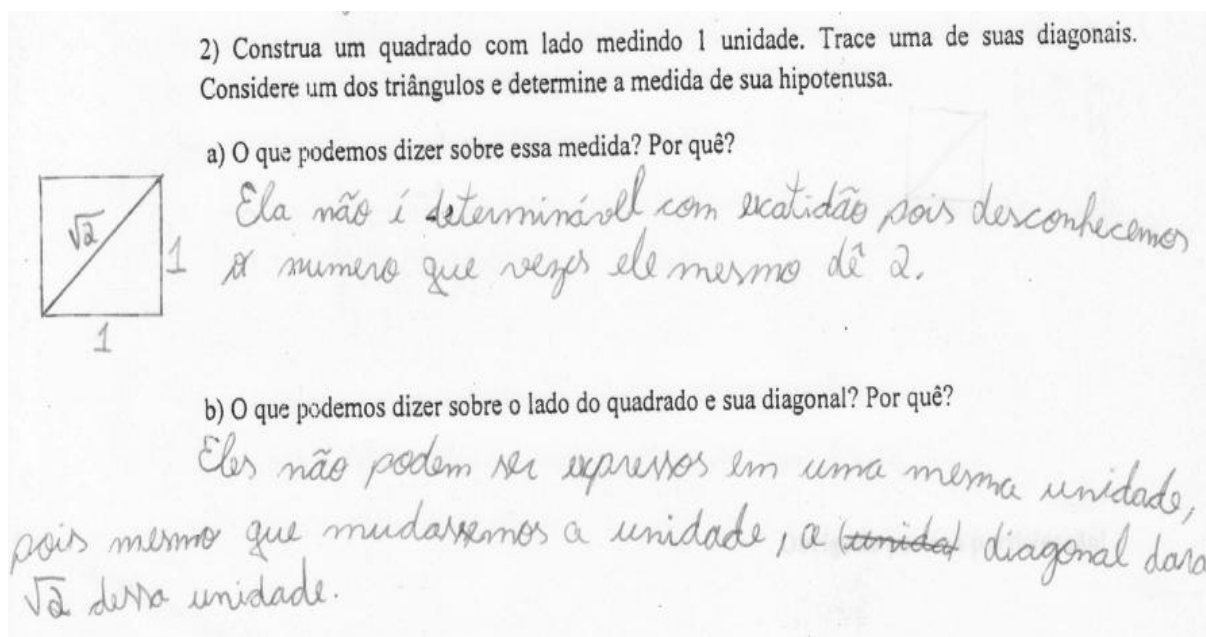 2) Construa um quadrado com lado medindo 1 unidade. Trace uma de suas diagonais.
Considere um dos triângulos e determine a medida de sua hipotenusa.
a) O que podemos dizer sobre essa medida? Por quê?
√2
1
1
Ela não é determinável com exatidão pois desconhecemos
o numero que vezes ele mesmo dê 2.
b) O que podemos dizer sobre o lado do quadrado e sua diagonal? Por quê?
Eles não podem ser expressos em uma mesma unidade,
pois mesmo que mudassemos a unidade, a (unida) diagonal dara
√2 dessa unidade.